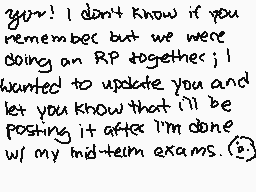 yo~! I don't know if you
remember but we were
doing an RP together; I
wanted to update you and
let you know that i'll be
posting it after I'm done
w/ my mid-term exams.